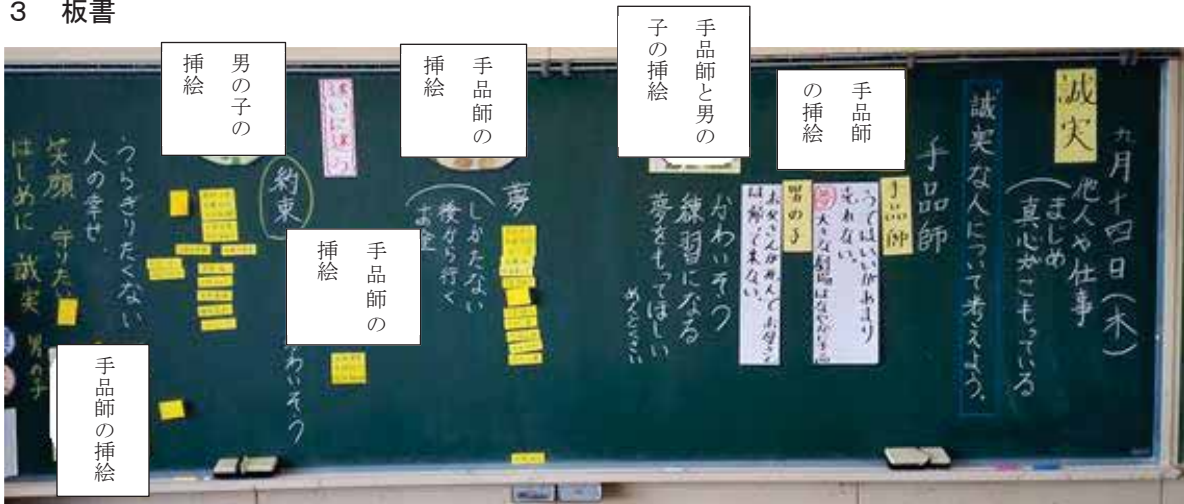 3 板書
九月十四日(木)
誠実
他人や仕事
まじめ
真心がこもっている
誠実な人について考えよう。
手品師
手品師
手品師
の挿絵
うではいいがあまり
売れない。
大きな劇場はなやかな手品
男の子
お父さんが死んでお母さん
は帰って来ない。
手品師と男の
子の挿絵
かわいそう
練習になる
夢をもってほしい
めんどくさい
夢
手品師の
挿絵
しかたない
後から行く
お金
手品師の
挿絵
わいそう
迷いに迷う
約束
男の子の
挿絵
うらぎりたくない
人の幸せ
笑顔 守りたい
はじめに 誠実 男の子
手品師の挿絵